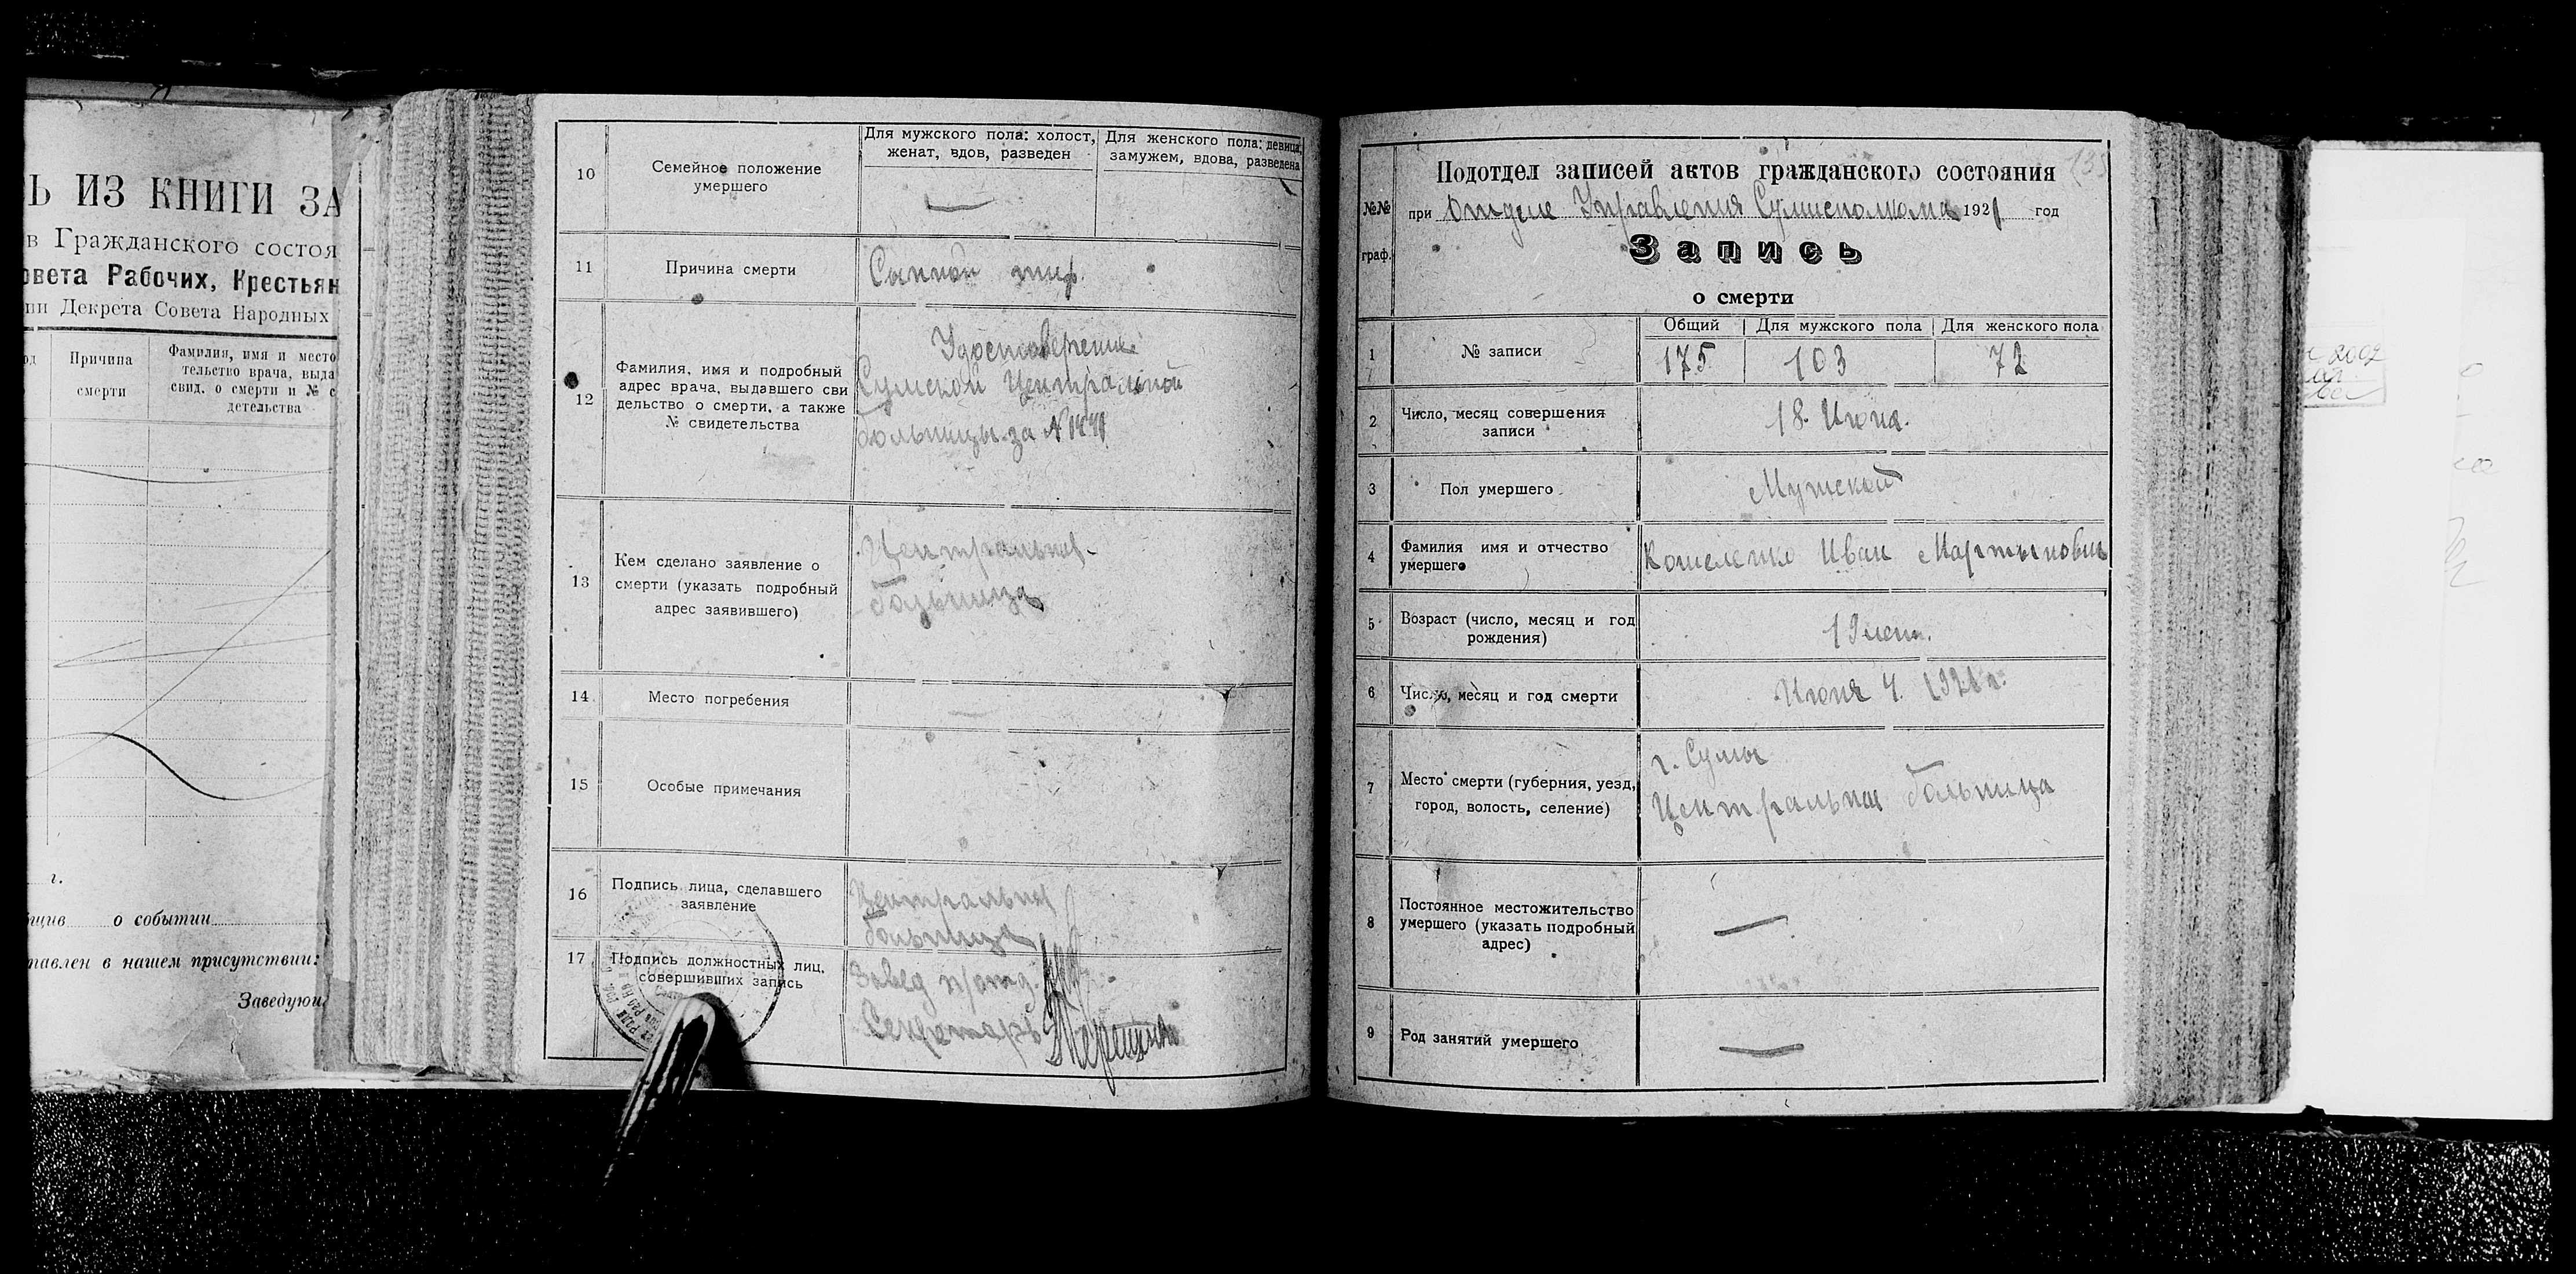 Ь ИЗ КНИГИ ЗА
в Гражданского состоя
овета Рабочих, Крестьян
ии Декрета Совета Народных
од
Причина
смерти
Фамилия, имя и место
тельство врача, выда
свид. о смерти и № с
детельства
г.
о событии
тавлен в нашем присутствии:
Заведую
10
Семейное положение
умершего
Для мужского пола: холост,
женат, вдов, разведен
Для женского пола: девица,
замужем, вдова, разведена
11
Причина смерти
Сыпной тиф.
12
Фамилия, имя и подробный
адрес врача, выдавшего сви
дельство о смерти, а также
№ свидетельства
Удостоверение
Сумской Центральной
больницы за №
13
Кем сделано заявление о
смерти (указать подробный
адрес заявившего)
Центральная
больница
14
Место погребения
15
Особые примечания
16
Подпись лица, сделавшего
заявление
Центральная
больница
17
Подпись должностных лиц,
совершивших запись
Завед
Секретарь
Подотдел записей актов гражданского состояния
№№
граф.
при Отделе Управления Сумисполкома 1921 год
Запись
о смерти
1
№ записи
Общий
Для мужского пола
Для женского пола
175
103
72
2
Число, месяц совершения
записи
18 Июня.
3
Пол умершего
Мужской
4
Фамилия имя и отчество
умершего
Кошеленко Иван Мартынович
5
Возраст (число, месяц и год
рождения)
19 лет.
6
Число, месяц и год смерти
Июня 4. 1921 г.
7
Место смерти (губерния, уезд,
город, волость, селение)
г. Сумы
Центральная больница
8
Постоянное местожительство
умершего (указать подробный
адрес)
9
Род занятий умершего
2002